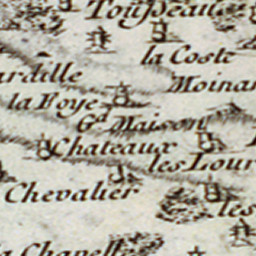 Toupeau
la Coste
Moinar
ardille
la Foye
Gd Maison
Chateaux
les Lour
Chevalier
les
a Chapell